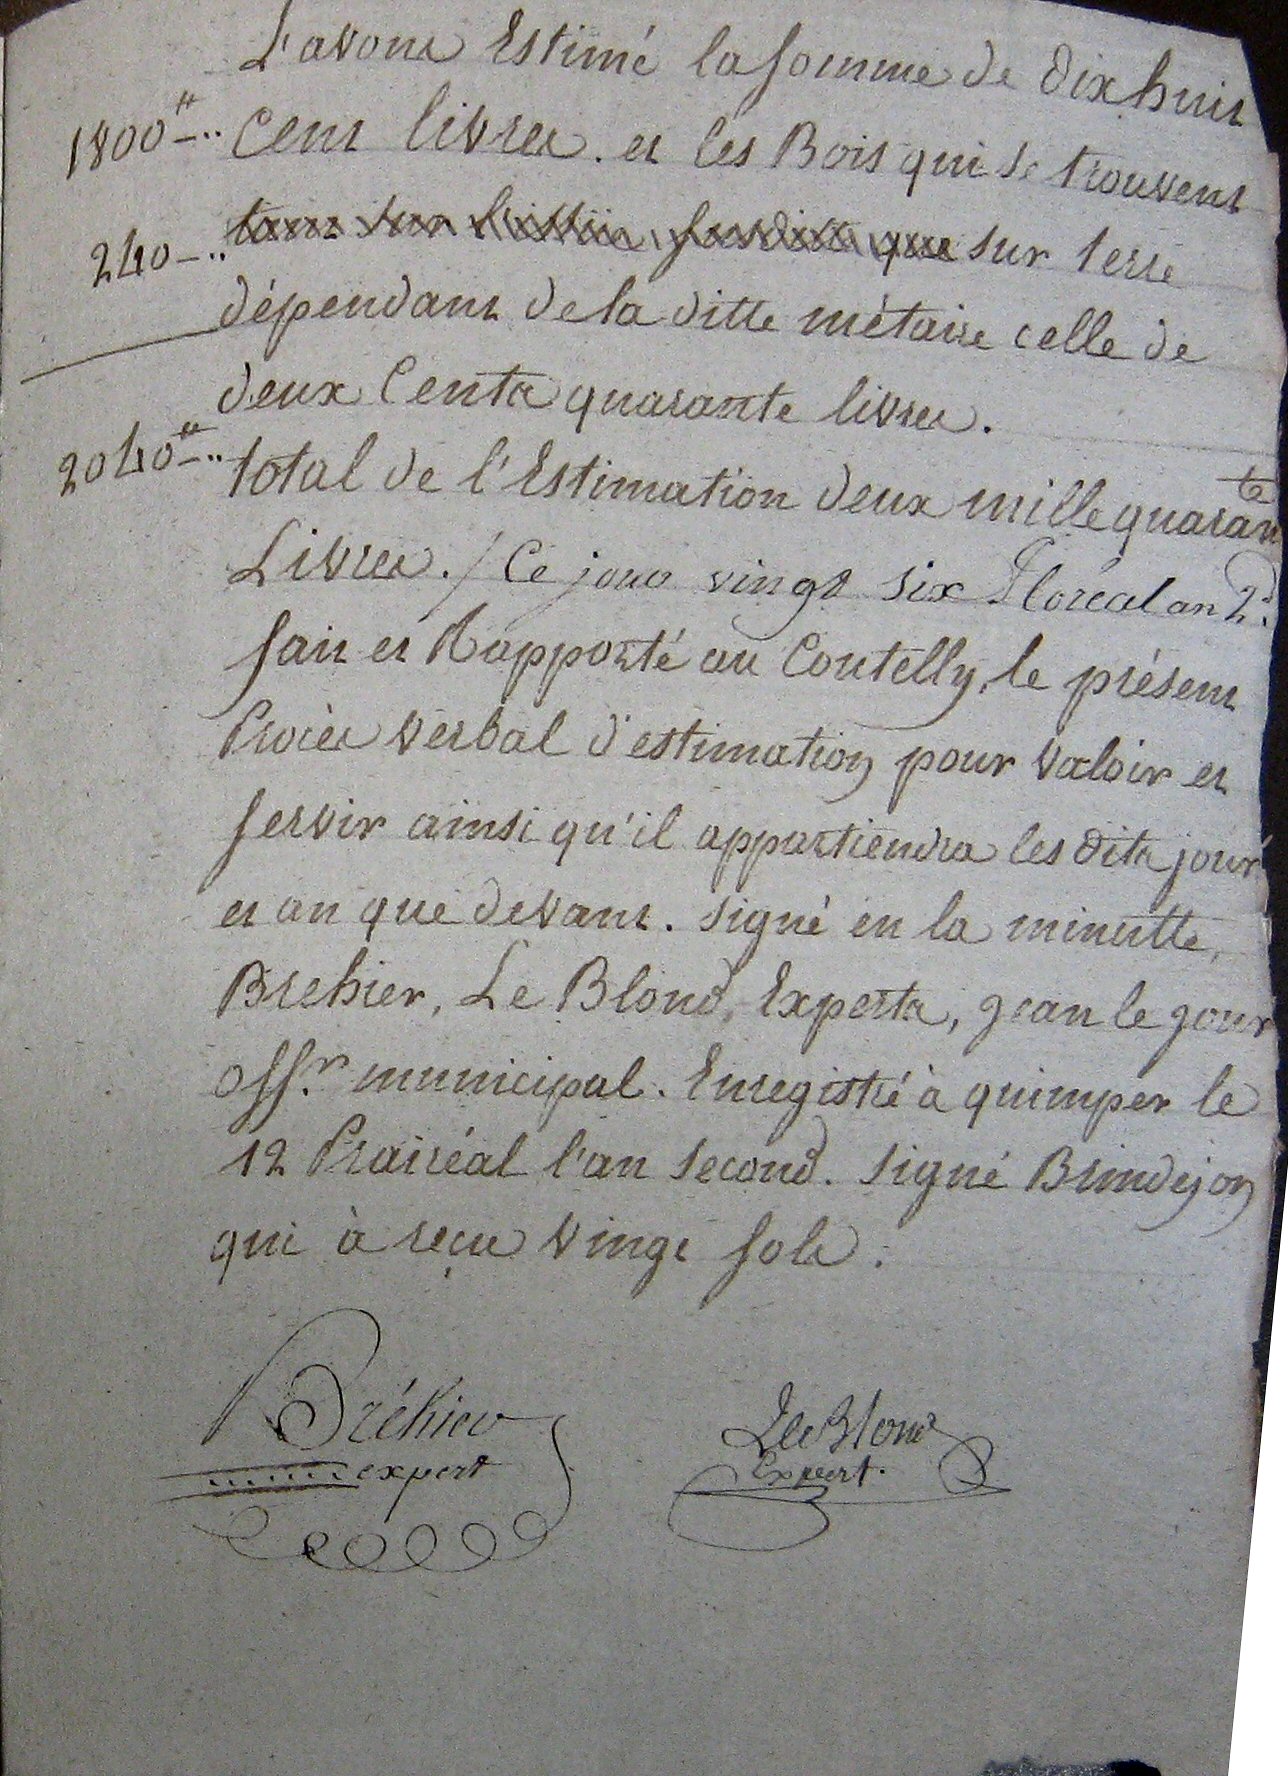 L'avons Estimé la somme de dix huit
1800# -.. Cent livres. et les Bois qui se trouvent
240 -.. sur terre
dépendant de la ditte métaire celle de
deux Cents quarante livres.
2040# -.. total de l'Estimation deux mille quarante
Livres. / Ce jour vingt six floréal an 2d.
fait et Rapporté au Coutelly, le présent
Procès verbal d'estimation pour valoir et
servir ainsi qu'il appartiendra les dits jour
et an que devant. signé en la minutte,
Brehier, Le Blond, Experts, jean le jour
offr. municipal. Enregistré à quimper le
12 Prairéal l'an second. signé Brindejon
qui à reçu vingt sols.
Bréhier LeBlond
expert Expert.